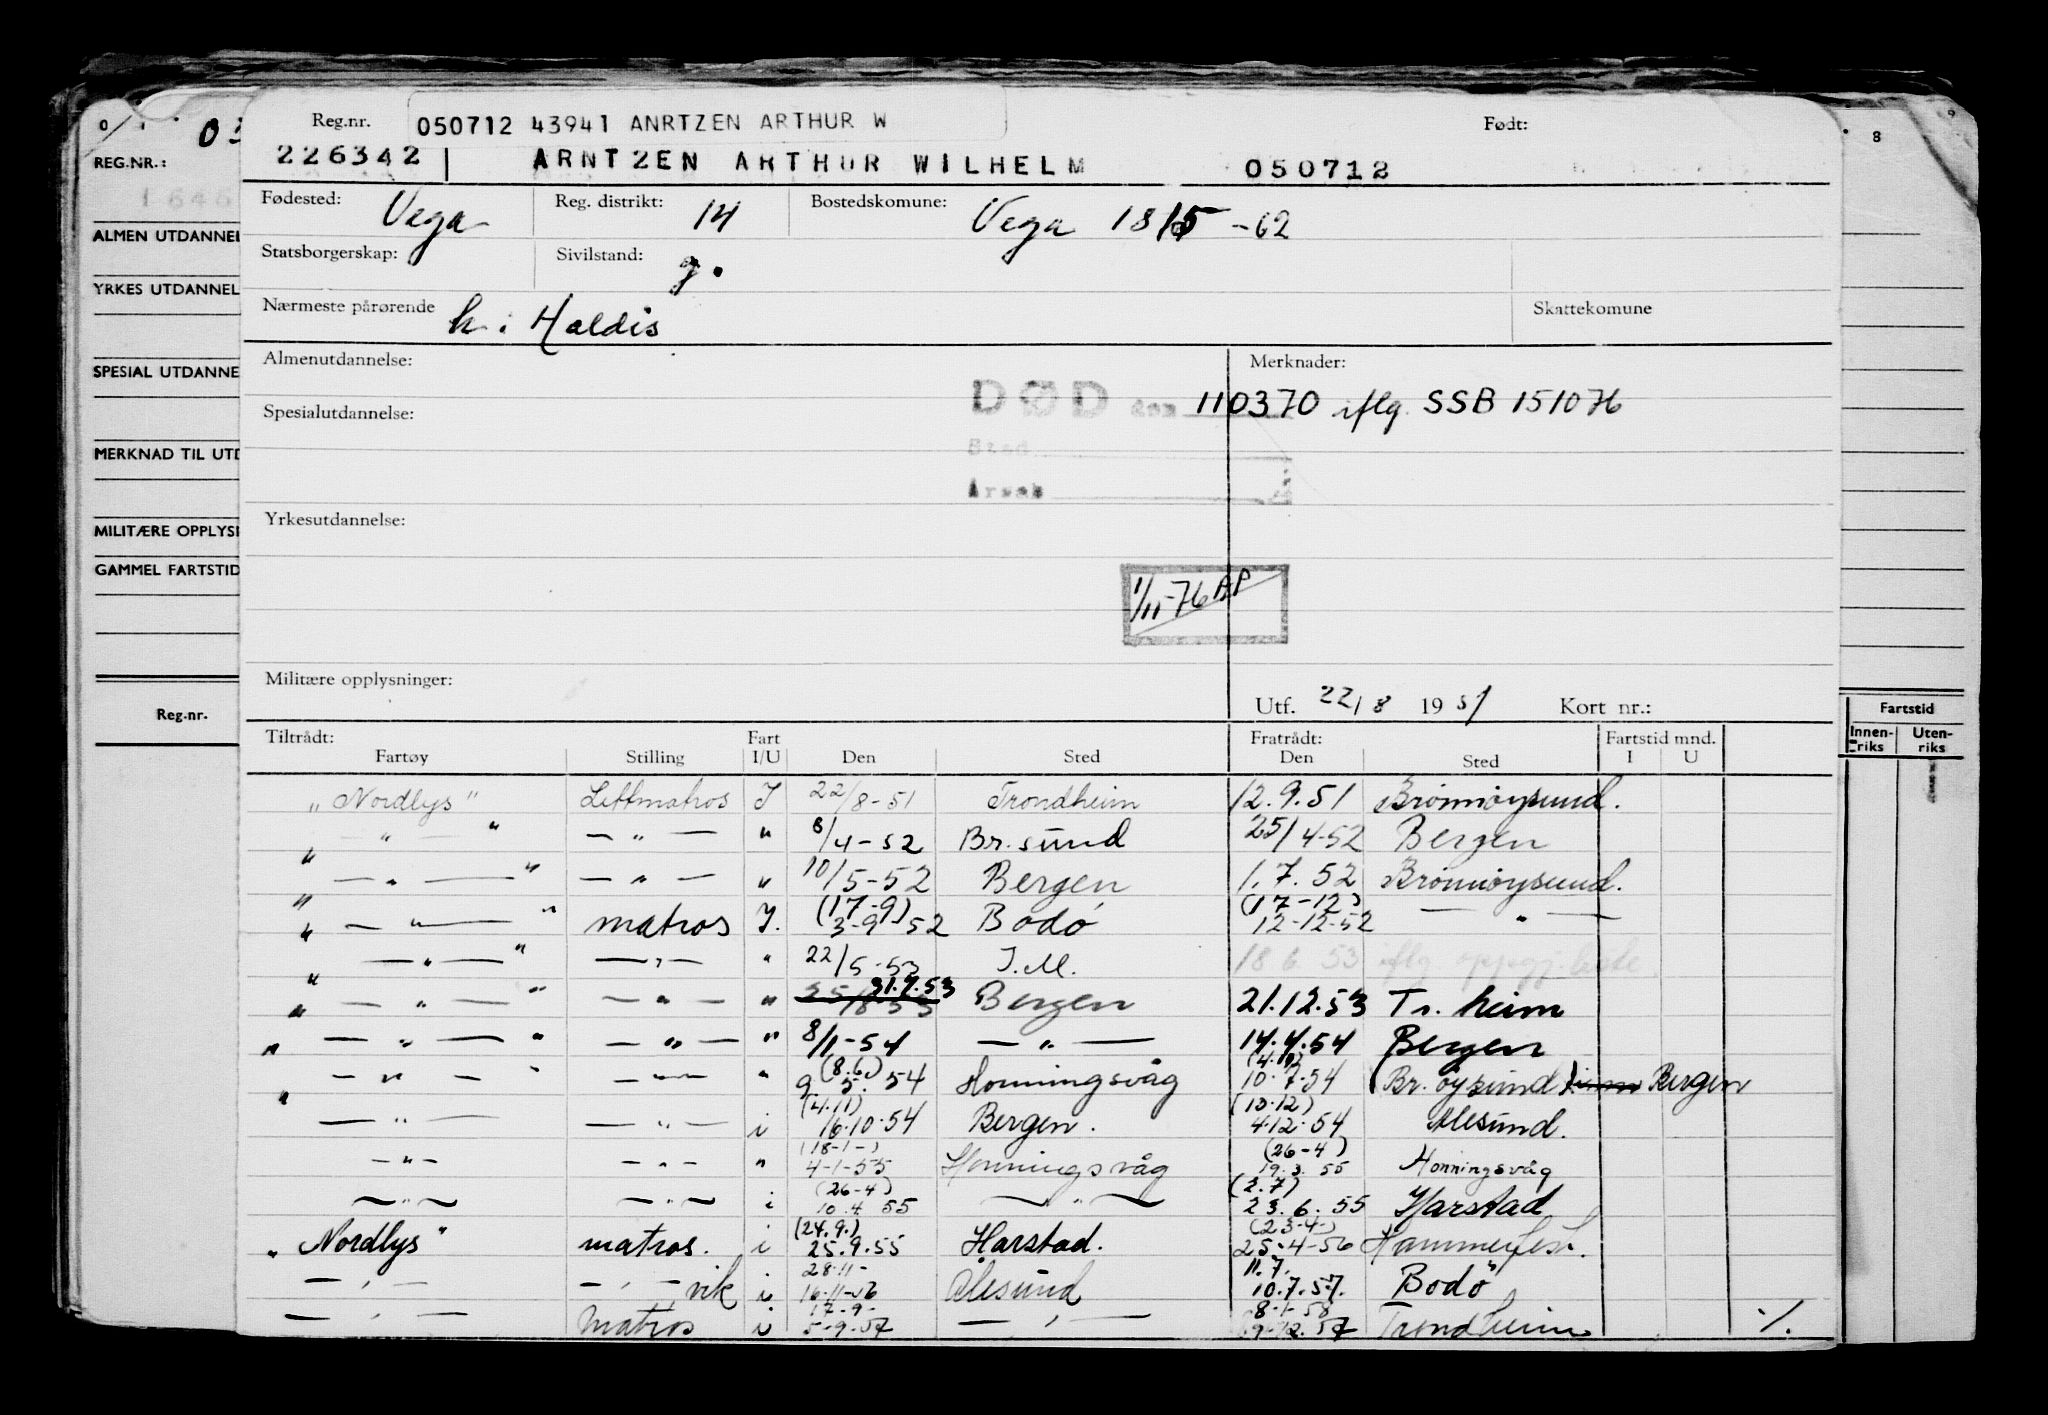 0 1
03
REG.NR.:
1646
ALMEN UTDANNEL
YRKES UTDANNEL
SPESIAL UTDANNE
MERKNAD TIL UTD
MILITÆRE OPPLYSN
GAMMEL FARTSTID
Reg.nr.
8 9
Fartstid
Innen-riks Uten-riks
Reg.nr. 050712 43941 ANRTZEN ARTHUR W Født:
226342 ARNTZEN ARTHUR WILHELM 050712
Fødested: Vega Reg. distrikt: 14 Bostedskomune: Vega 1815 -62
Statsborgerskap: Sivilstand: g.
Nærmeste pårørende h: Haldis Skattekomune
Almenutdannelse: Merknader:
DØD den 110370 iflg. SSB 151076
Spesialutdannelse:
Sted
Årsak
Yrkesutdannelse:
1/11-76 AP
Militære opplysninger:
Utf. 22/8 1951 Kort nr.:
Tiltrådt: Fart Fratrådt: Fartstid mnd.
Fartøy Stilling I/U Den Sted Den Sted I U
"Nordlys" Lettmatros I 22/8-51 Trondheim 12.9.51 Brønnøysund.
" — " — " — " — " 8/4-52 Br.sund 25/4-52 Bergen
" — " — " — " — " 10/5-52 Bergen 1.7.52 Brønnøysund.
" — " — " matros I. (17-9) 3-9 52 Bodø (17-12) 12-12-52 — " —
" — " — " — " — " 22/5-53 I.M. 18 6 53 iflg oppgj.liste.
" — " — " — " — " 25/8-53 31.9.53 Bergen 21.12.53 Tr.heim
" — " — " — " — " 8/1-54 — " — 14.4.54 Bergen
" — " — " — " — " (8.6.) 9.5.54 Honningsvåg 10.7.54 (Br.øysund) Bergen
" — " — — " — i (4.11) 16.10.54 Bergen. (10.12) 4.12.54 Ålesund.
— " — — " — " (18-1-) 4-1-55 Honningsvåg (26-4) 19.3.55 Honningsvåg
— " — — " — i (26-4) 10.4 55 — " — (2.7) 23.6.55 Harstad
"Nordlys" matros. i (24.9.) 25.9.55 Harstad. (23-4-) 25-4-56 Hammerfest.
— " — — " — vik i 28-11- 16-11-56 Ålesund 11.7. 10.7.57. Bodø
— " — Matros i 17-9- 5-9-57 — " — 8-1-58 Trondheim ./.